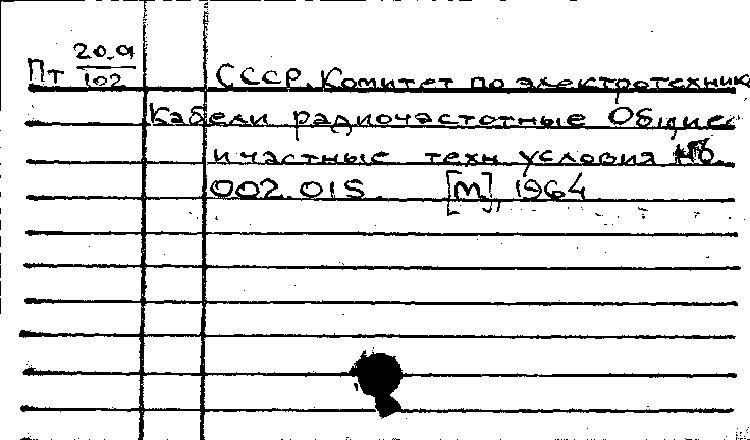 Пт 20.9
102
СССР. Комитет по электротехник
Кабели радиочастотные Общие
и частные техн. условия
002.015 [М], 1964